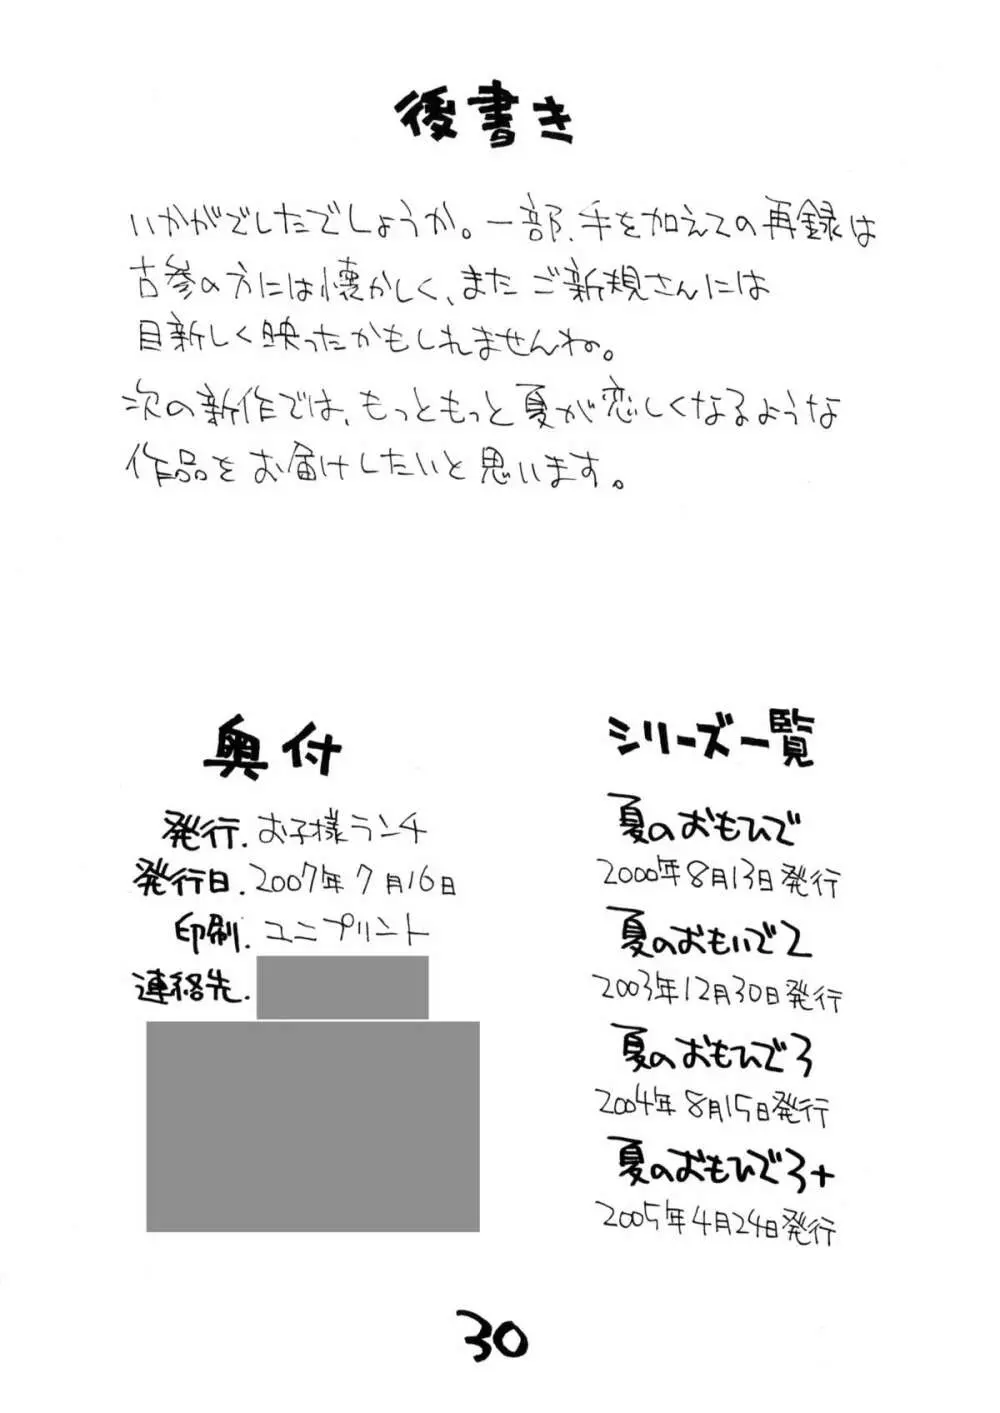 後書き
いかがでしたでしょうか。一部、手を加えての再録は
古参の方には懐かしく、またご新規さんには
目新しく映ったかもしれませんね。
次の新作では、もっともっと夏が恋しくなるような
作品をお届けしたいと思います。
奥付
発行.お子様ランチ
発行日.2007年7月16日
印刷.ユニプリント
連絡先.
シリーズ一覧
夏のおもひで
2000年8月13日発行
夏のおもいで2
2003年12月30日発行
夏のおもひで3
2004年8月15日発行
夏のおもひで3+
2005年4月24日発行
30